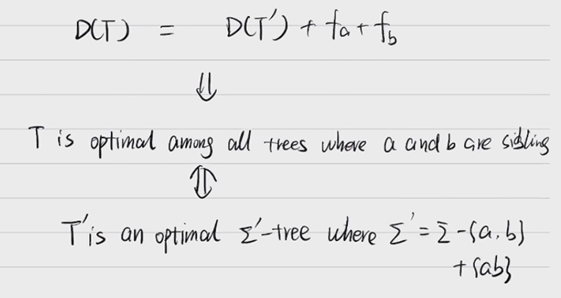 D(T) = D(T') + fa + fb
⇓
T is optimal among all trees where a and b are sibling
⇕
T' is an optimal Σ'-tree where Σ' = Σ - {a, b}
+ {ab}